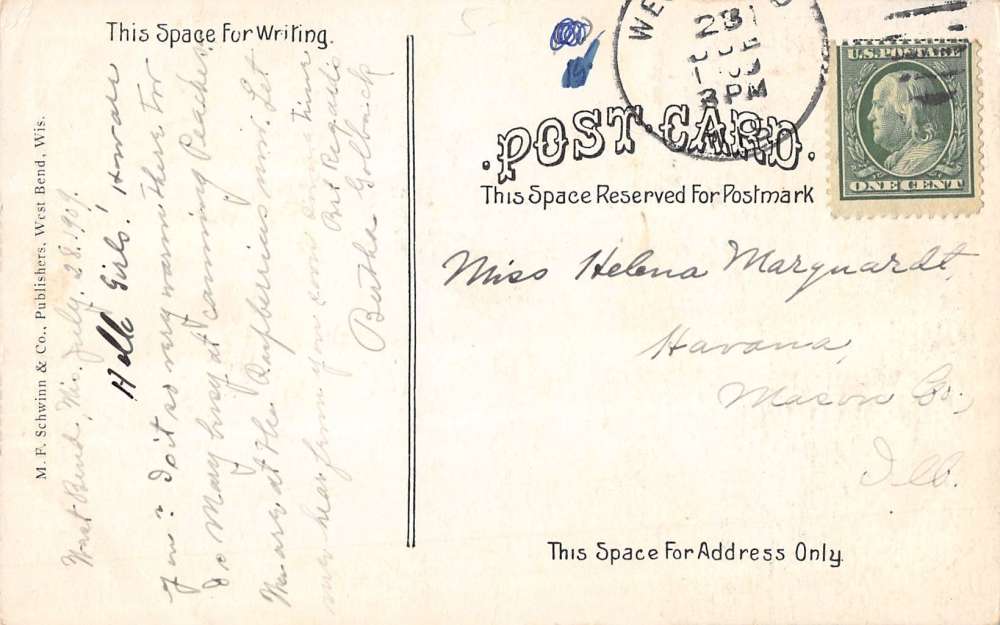 This Space For Writing.
M. F. Schwinn & Co., Publishers, West Bend, Wis.
West Bend, Wis. July. 28. 1909.
Hello Girls! How are
you? Is it so very warm there For
is Mary busy at canning Peaches
We are at the Raspberries now. Let
me hear from you some time
Best Regards
Bertha Golback
WE
23
3 PM
U.S. POSTAGE
ONE CENT
POST CARD.
This Space Reserved For Postmark
Miss Helena Marquardt
Havana,
Mason Co.,
Ill.
This Space For Address Only.